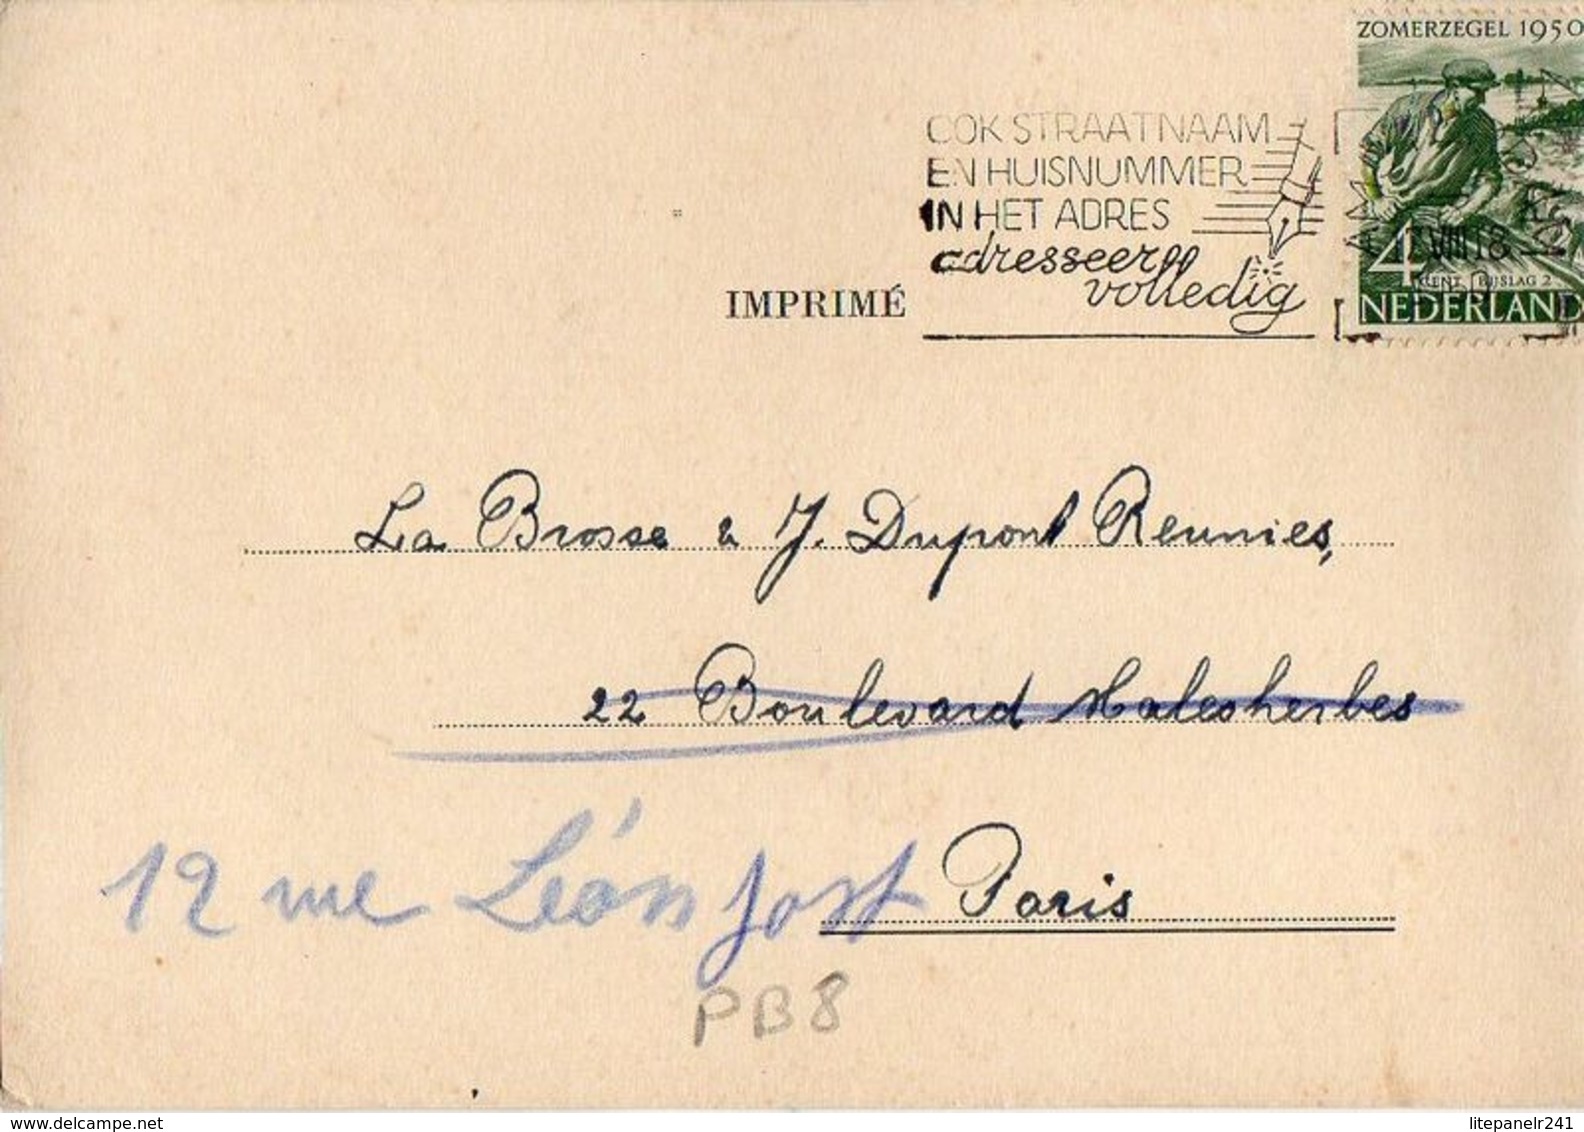 ZOMERZEGEL 1950
OOK STRAATNAAM
EN HUISNUMMER
IN HET ADRES
adresseer
volledig
VIII 18
4 CENT BIJSLAG 2
NEDERLAND
IMPRIMÉ
La Brosse & J. Dupont Reunies,
22 Boulevard Malesherbes
12 rue Léon Jost Paris
PB8
delcampe.net
litepanelr241